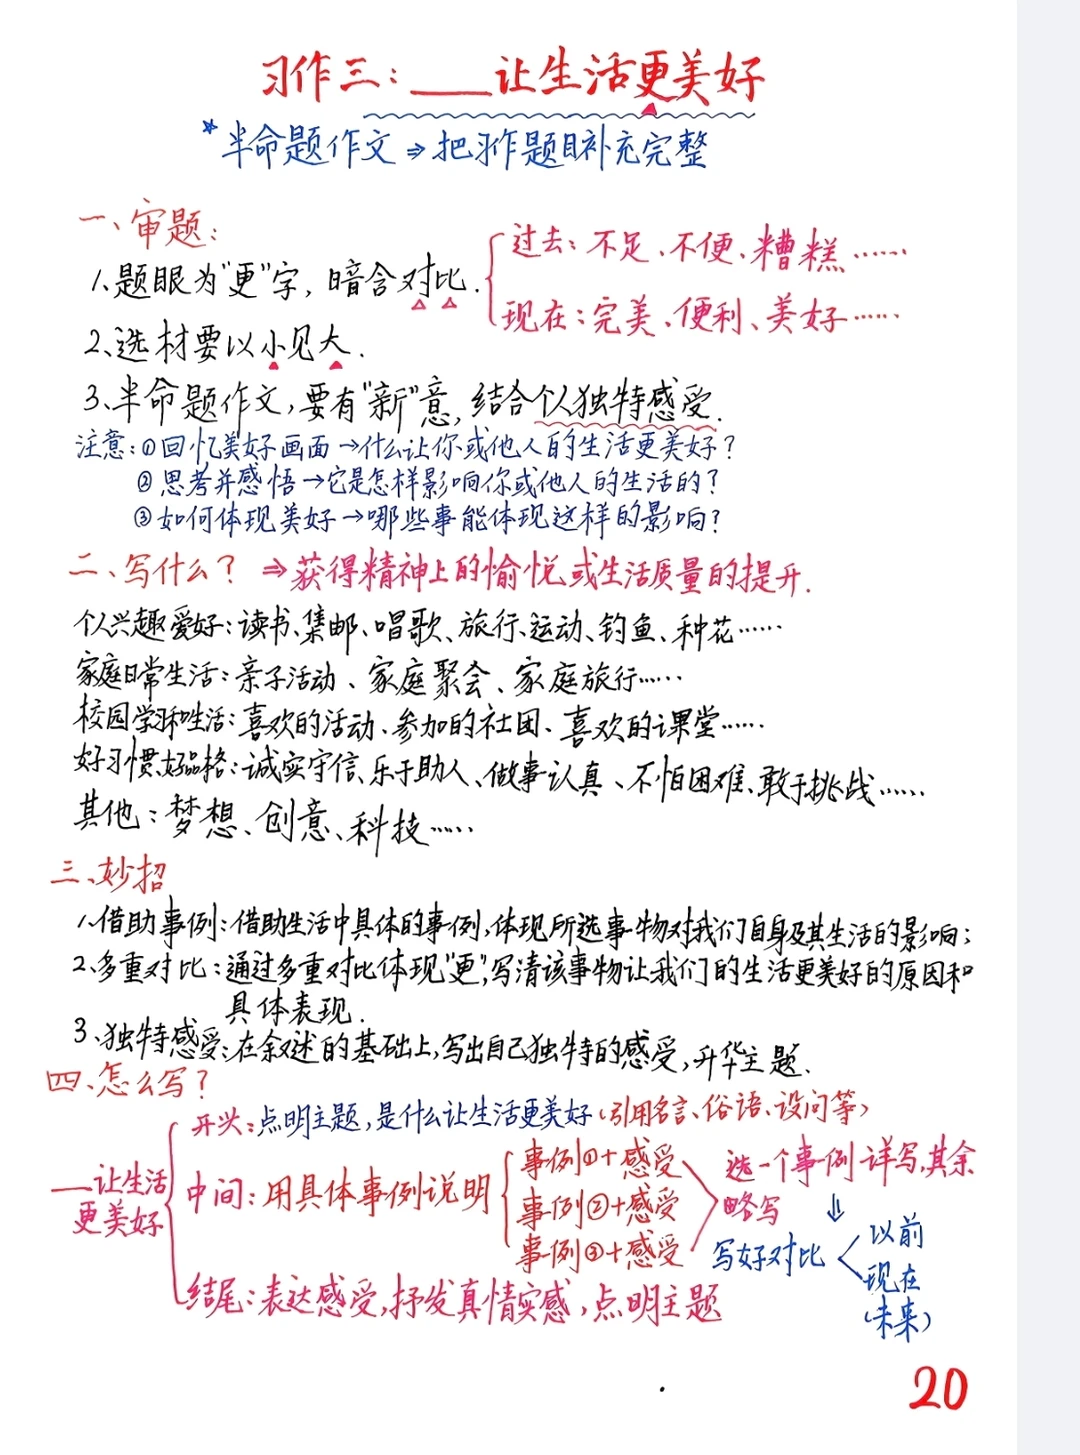 习作三：____让生活更美好
*半命题作文⇒把习作题目补充完整
一、审题：
1.题眼为"更"字，暗含对比.
过去：不足、不便、糟糕……
现在：完美、便利、美好……
2、选材要以小见大.
3、半命题作文，要有"新"意，结合个人独特感受.
注意：①回忆美好画面→什么让你或他人的生活更美好？
②思考并感悟→它是怎样影响你或他人的生活的？
③如何体现美好→哪些事能体现这样的影响？
二、写什么？⇒获得精神上的愉悦或生活质量的提升.
个人兴趣爱好：读书、集邮、唱歌、旅行、运动、钓鱼、种花……
家庭日常生活：亲子活动、家庭聚会、家庭旅行……
校园学习和生活：喜欢的活动、参加的社团、喜欢的课堂……
好习惯、好品格：诚实守信、乐于助人、做事认真、不怕困难、敢于挑战……
其他：梦想、创意、科技……
三、妙招
1、借助事例：借助生活中具体的事例，体现所选事物对我们自身及其生活的影响；
2、多重对比：通过多重对比体现"更"，写清该事物让我们的生活更美好的原因和
具体表现.
3、独特感受：在叙述的基础上，写出自己独特的感受，升华主题.
四、怎么写？
____让生活
更美好
开头：点明主题，是什么让生活更美好（引用名言、俗语、设问等）
中间：用具体事例说明
事例①+感受
事例②+感受
事例③+感受
选一个事例详写，其余
略写
⇓
写好对比
以前
现在
（未来）
结尾：表达感受，抒发真情实感，点明主题
20